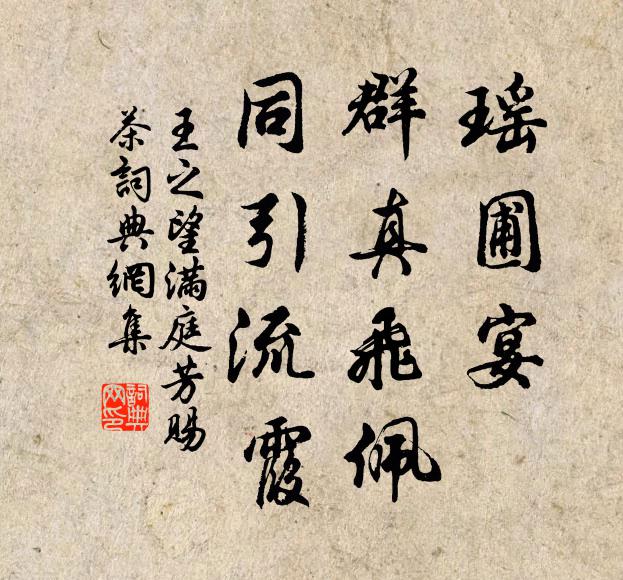 瑶圃宴
群真飛佩
同引流霞
王之望滿庭芳賜
茶詞典網集
詞典網印